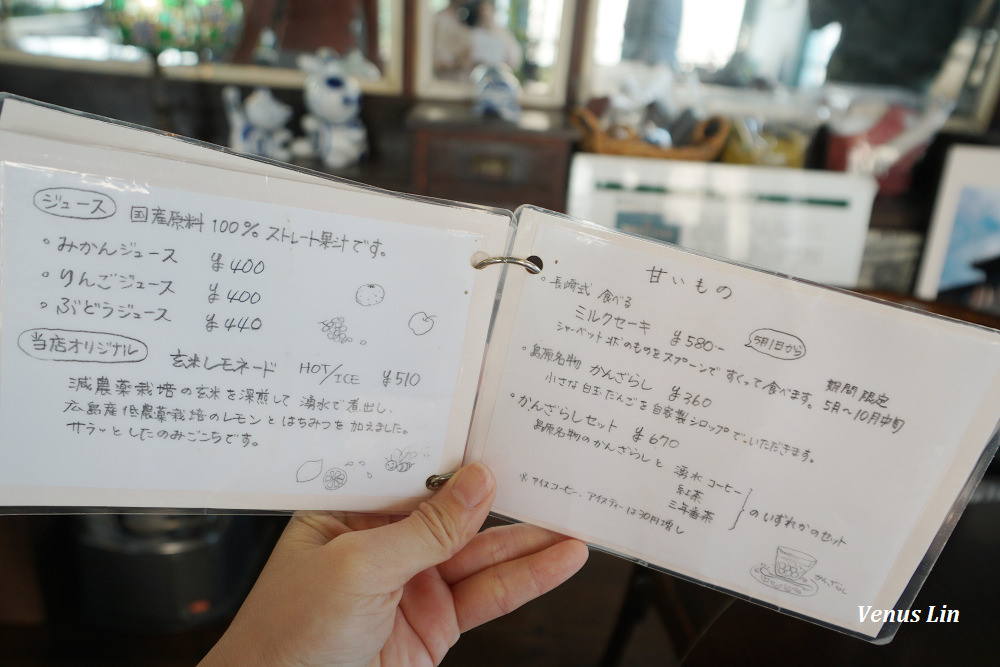 ジュース 国産原料 100% ストレート果汁です。
・みかんジュース ¥400
・りんごジュース ¥400
・ぶどうジュース ¥440
当店オリジナル 玄米レモネード HOT/ICE ¥510
減農薬栽培の玄米を深煎して 湧水で煮出し、
広島産低農薬栽培のレモンとはちみつを加えました。
サラッとしたのみごこちです。
甘いもの
・長崎式 食べる
ミルクセーキ ¥580- 5月1日から
シャーベット状のものをスプーンですくって食べます。 期間限定
5月〜10月中旬
・島原名物 かんざらし ¥360
小さな白玉だんごを自家製シロップでいただきます。
・かんざらしセット ¥670
島原名物のかんざらしと 湧水コーヒー
紅茶
三年番茶
のいずれかのセット
※アイスコーヒー、アイスティーは30円増し
かんざらし
Venus Lin